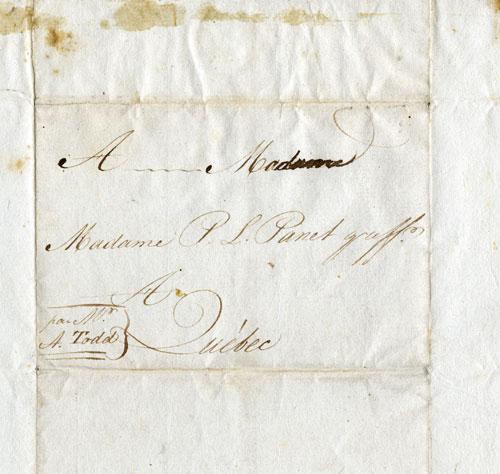 A Madame
Madame P. L. Panet greffr
A
Québec
par Mr
A. Todd